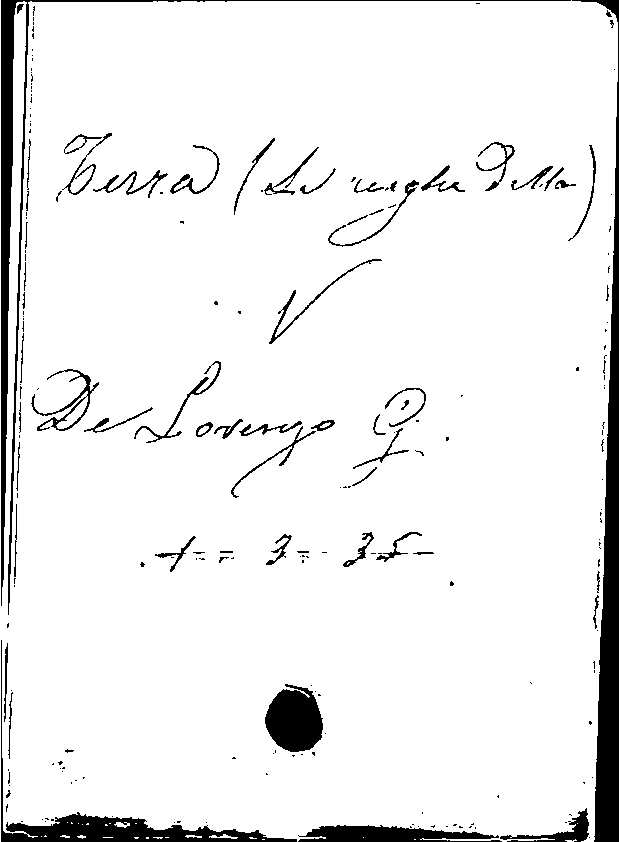 Terra (Le rughe Della)
V
De Lorenzo G.
1 = 3 = 35